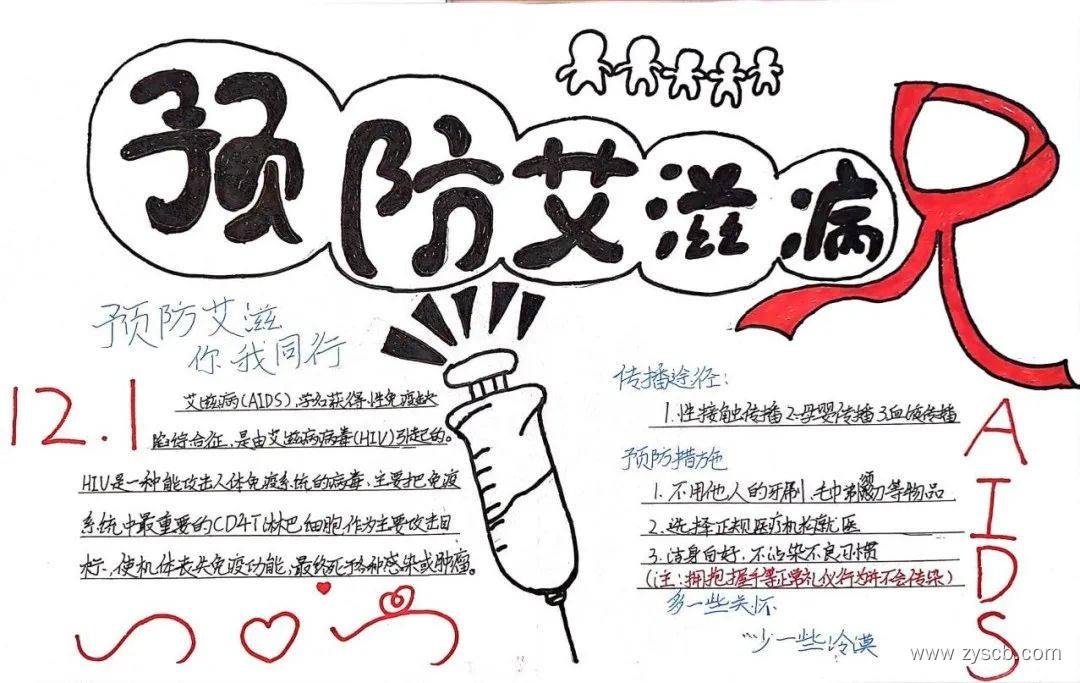 预防艾滋病
预防艾滋
你我同行
12.1
艾滋病(AIDS),学名获得性免疫缺
陷综合征,是由艾滋病病毒(HIV)引起的。
HIV是一种能攻击人体免疫系统的病毒,主要把免疫
系统中最重要的CD4T淋巴细胞作为主要攻击目
标,使机体丧失免疫功能,最终死于各种感染或肿瘤。
传播途径:
1.性接触传播2.母婴传播3.血液传播
预防措施
1.不用他人的牙刷、毛巾剃须刀等物品
2.选择正规医疗机构就医
3.洁身自好,不沾染不良习惯
(注:拥抱握手等正常礼仪行为并不会传染)
多一些关怀
少一些冷漠
AIDS
www.zyscb.com